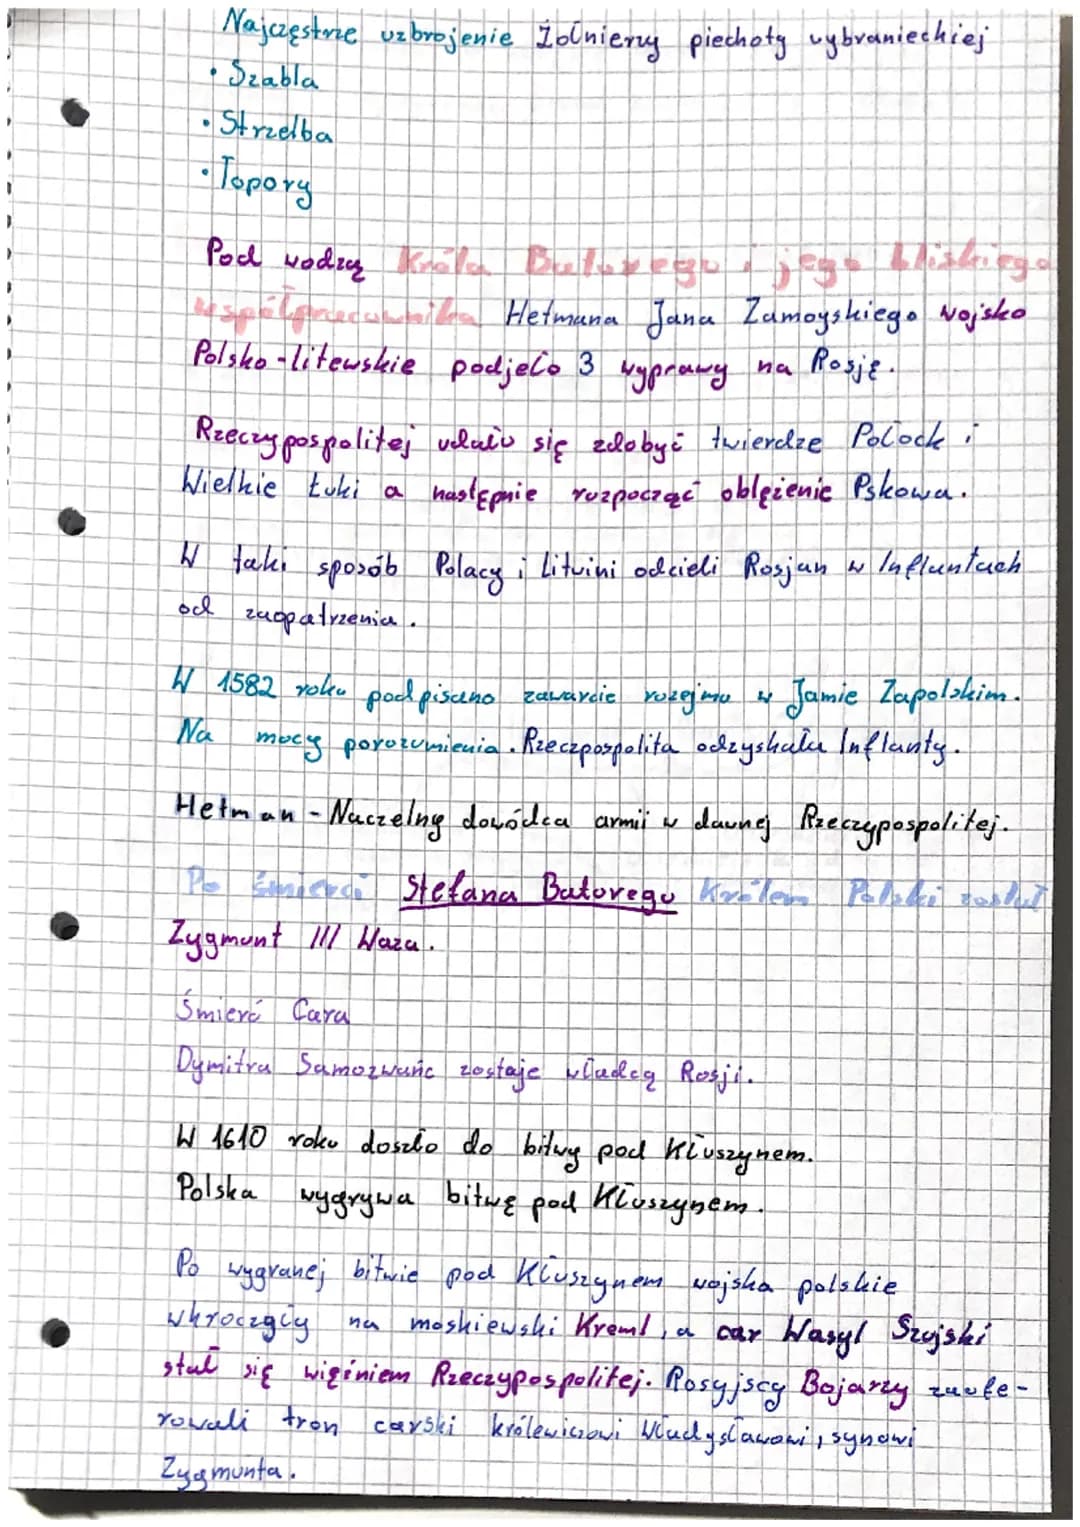 Najczęstrze uzbrojenie Żołnierzy piechoty wybranieckiej
• Szabla
• Strzelba
• Topory
Pod wodzą Króla Batorego i jego bliskiego
współpracownika Hetmana Jana Zamoyskiego wojsko
Polsko-litewskie podjeło 3 wyprawy na Rosję.
Rzeczypospolitej udało się zdobyć twierdze Połock i
Wielkie Łuki a następnie rozpocząć oblężenie Pskowa.
W taki sposób Polacy i Litwini odcieli Rosjan w Influntach
od zaopatrzenia.
W 1582 roku podpisano zawarcie rozejmu w Jamie Zapolskim.
Na mocy porozumienia. Rzeczpospolita odzyskała Inflanty.
Hetman - Naczelny dowódca armii w dawnej Rzeczypospolitej.
Po śmierci Stefana Batorego Królem Polski został
Zygmunt III Waza.
Śmierć Cara
Dymitra Samozwańc zostaje władcą Rosji.
W 1610 roku doszło do bitwy pod Kłuszynem.
Polska wygrywa bitwę pod Kłuszynem.
Po wygranej bitwie pod Kłuszynem wojska polskie
wkroczyły na moskiewski Kreml, a car Wasyl Szujski
stał się więźniem Rzeczypospolitej. Rosyjscy Bojarzy zaofe-
rowali tron carski królewiczowi Władysławowi, synowi
Zygmunta.